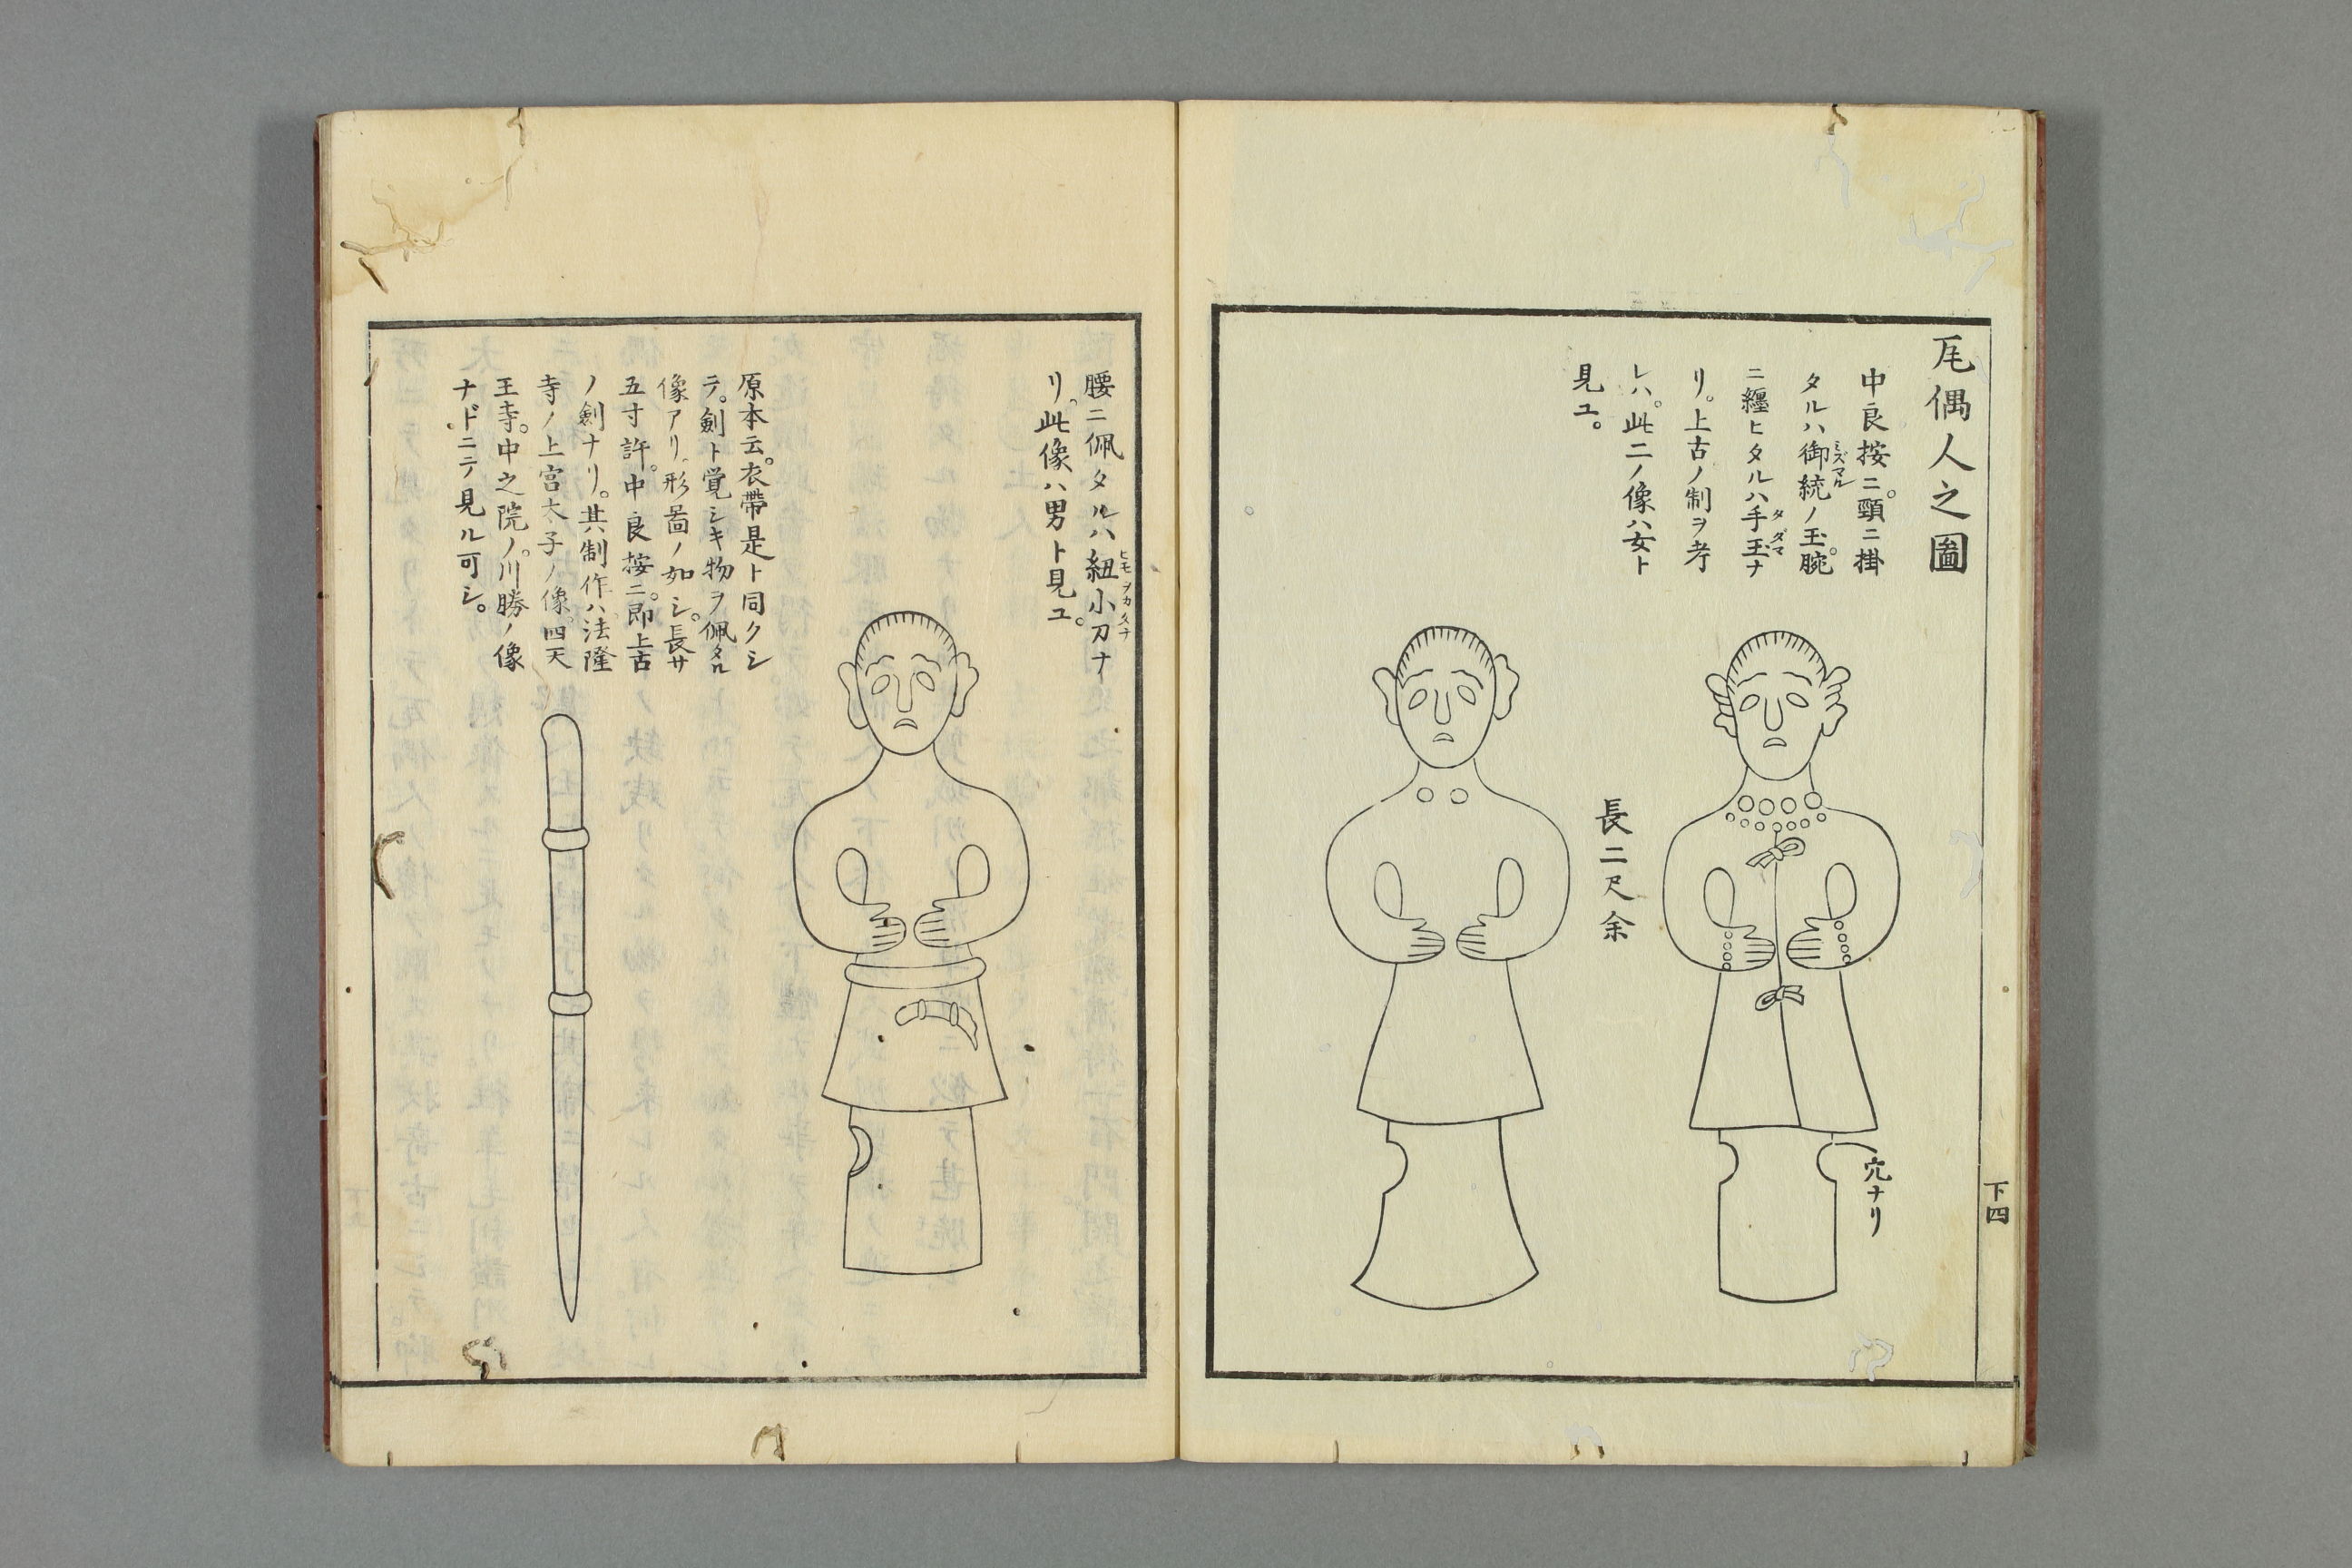 瓦偶人之圖
中良按ニ。頸ニ掛
タルハ御統ノ玉。腕
ミスマル
ニ纏ヒタルハ手玉ナ
タダマ
リ。上古ノ制ヲ考
レハ。此二ノ像ハ女ト
見ユ。
長二尺余
穴ナリ
下四
腰ニ佩タルハ紐小刀ナ
ヒモヲカタナ
リ。此像ハ男ト見ユ。
原本云。衣帶是ト同クシ
テ。劍ト覚シキ物ヲ佩タル
像アリ。形圖ノ如シ。長サ
五寸許。中良按ニ。即上古
ノ劍ナリ。其制作ハ法隆
寺ノ上宮太子ノ像。四天
王寺。中之院ノ。川勝ノ像
ナドニテ見ル可シ。